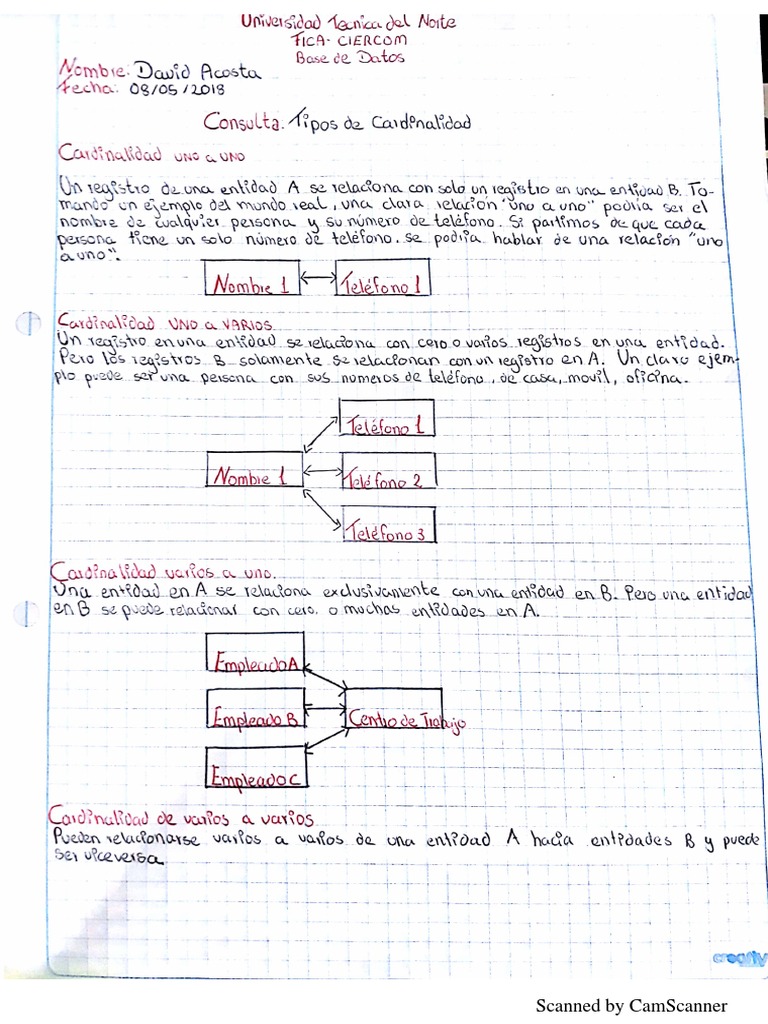 Universidad Tecnica del Norte
FICA- CIERCOM
Base de Datos
Nombre: David Acosta
Fecha: 08/05/2018
Consulta. Tipos de Cardinalidad
Cardinalidad UNO a UNO
Un registro de una entidad A se relaciona con solo un registro en una entidad B. To-
mando un ejemplo del mundo real, una clara relación "uno a uno" podria ser el
nombre de cualquier persona y su número de teléfono. Si partimos de que cada
persona tiene un solo número de teléfono. se podria hablar de una relación "uno
a uno".
Nombre 1
Teléfono 1
Cardinalidad UNO a VARIOS
Un registro en una entidad se relaciona con cero o varios registros en una entidad.
Pero los registros B solamente se relacionan con un registro en A. Un claro ejem-
plo puede ser una persona con sus numeros de teléfono, de casa, movil, oficina.
Teléfono 1
Nombre 1
Teléfono 2
Teléfono 3
Cardinalidad varios a uno.
Una entidad en A se relaciona exclusivamente con una entidad en B. Pero una entidad
en B se puede relacionar con cero. o muchas entidades en A.
Empleado A
Empleado B
Centro de Trabajo
Empleado C
Cardinalidad de varios a varios
Pueden relacionarse varios a varios de una entidad A hacia entidades B y puede
ser viceversa
creativ
Scanned by CamScanner